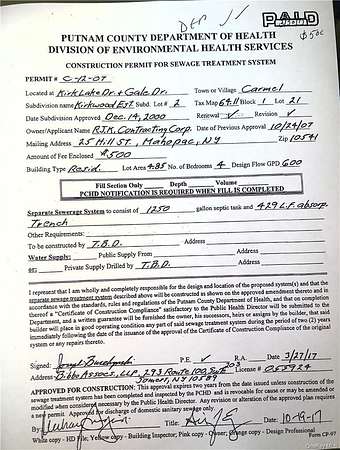 DEP
PAID
$500
PUTNAM COUNTY DEPARTMENT OF HEALTH
DIVISION OF ENVIRONMENTAL HEALTH SERVICES
CONSTRUCTION PERMIT FOR SEWAGE TREATMENT SYSTEM
PERMIT # C-12-07
Located at Kirk Lake Dr. + Gale Dr. Town or Village Carmel
Subdivision name Kirkwood Est. Subd. Lot # 2 Tax Map 64.11 Block 1 Lot 21
Date Subdivision Approved Dec. 14, 2000 Renewal ✓ Revision ✓
Owner/Applicant Name R.J.K. Contracting Corp. Date of Previous Approval 10/24/07
Mailing Address 25 Hill St., Mahopac, NY Zip 10541
Amount of Fee Enclosed $500
Building Type Resid. Lot Area 4.85 No. of Bedrooms 4 Design Flow GPD 600
Fill Section Only Depth Volume
PCHD NOTIFICATION IS REQUIRED WHEN FILL IS COMPLETED
Separate Sewerage System to consist of 1250 gallon septic tank and 429 L.F. absorp.
Trench
Other Requirements:
To be constructed by T.B.D. Address
Water Supply: Public Supply From Address
or: Private Supply Drilled by T.B.D. Address
I represent that I am wholly and completely responsible for the design and location of the proposed system(s) and that the
separate sewage treatment system described above will be constructed as shown on the approved amendment thereto and in
accordance with the standards, rules and regulations of the Putnam County Department of Health, and that on completion
thereof a "Certificate of Construction Compliance" satisfactory to the Public Health Director will be submitted to the
Department, and a written guarantee will be furnished the owner, his successors, heirs or assigns by the builder, that said
builder will place in good operating condition any part of said sewage treatment system during the period of two (2) years
immediately following the date of the issuance of the approval of the Certificate of Construction Compliance of the original
system or any repairs thereto.
Signed: P.E. ✓ R.A. Date 3/27/17
Address Bibbo Assoc., LLP, 293 Route 100, Suite 203 License #
Somers, NY 10589
APPROVED FOR CONSTRUCTION: This approval expires two years from the date issued unless construction of the
sewage treatment system has been completed and inspected by the PCHD and is revocable for cause or may be amended or
modified when considered necessary by the Public Health Director. Any revision or alteration of the approved plan requires
a new permit. Approved for discharge of domestic sanitary sewage only.
By: Title: Date: 10-19-17
White copy - HD File; Yellow copy - Building Inspector; Pink copy - Owner; Orange copy - Design Professional
Form CP-97